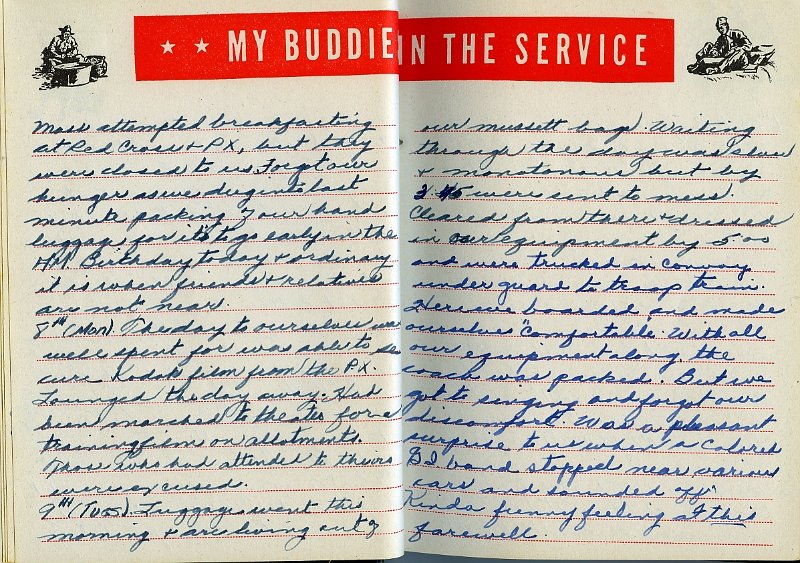 ★ ★ MY BUDDIE
Most attempted breakfasting
at Red Cross & PX, but they
were closed to us. Forgot our
hunger as we dug into last
minute packing of our hand
luggage for it's to go early in the
AM. Birthday today & ordinary
it is when friends & relatives
are not near.
8th (Mon). The day to ourselves was
well spent for was able to se
cure Kodak film from the PX.
Lounged the day away. Had
been marched to theater for a
training film on allotments.
Those who had attended to theirs
were excused.
9th (Tues). Luggage went this
morning & are living out of
IN THE SERVICE
our mussett bag. Waiting
through the day was slow
& monotonous but by
3:45 were sent to mess.
Cleared from there & dressed
in our equipment by 5:00
and were trucked in convoy
under guard to troop train.
Here we boarded and made
ourselves "comfortable. With all
our equipment along the
coach was packed. But we
got to singing and forgot our
discomfort. Was a pleasant
surprise to us when a colored
GI band stopped near various
cars and sounded off"
Kinda funny feeling at this
farewell.